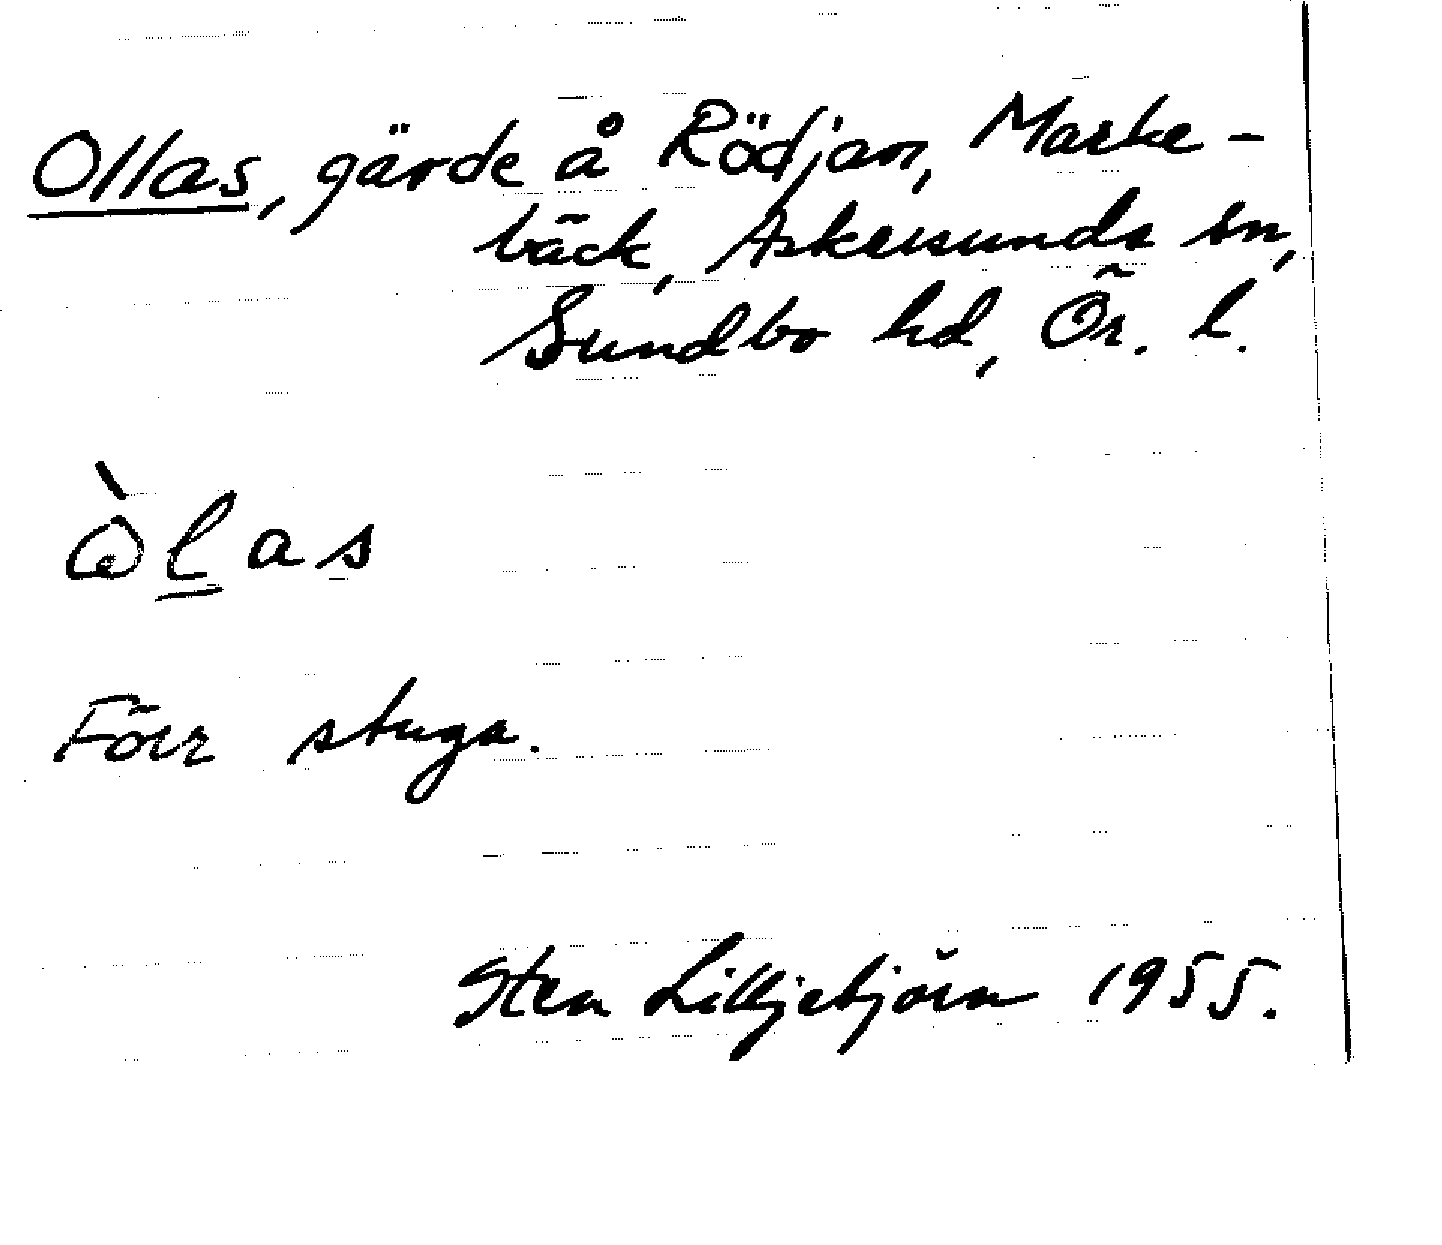 Ollas, gärde å Rödjan, Marke-
bäck, Askersunds sn,
Sundbo hd, Ör. l.
òl̲as
Förr stuga.
Sten Lilljebjörn 1955.